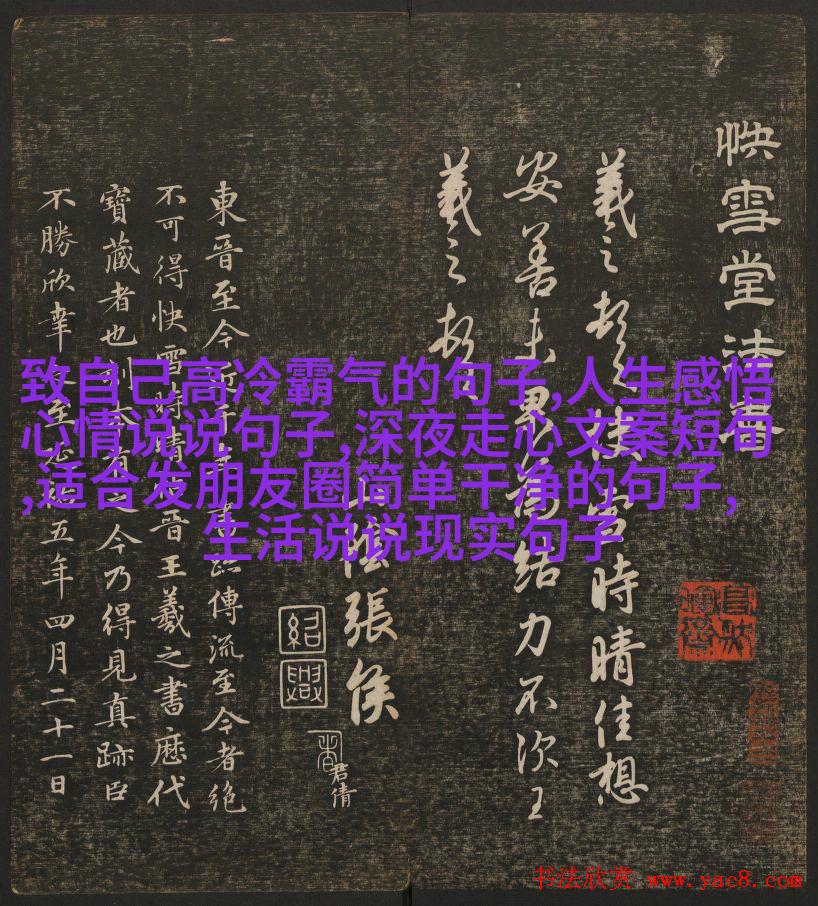 快雪堂法書
羲之頓快雪時晴佳想
安善未果為結力不次王
羲之頓首
山陰張侯
紹興
君倩
東晉至今近千年書跡傳流至今者絕
不可得快雪時晴帖晉王羲之書歷代
寶藏者也刻本有之今乃得見真跡臣
不勝欣幸五年四月二十一日
致自己高冷霸气的句子,人生感悟
心情说说句子,深夜走心文案短句
,适合发朋友圈简单干净的句子,
生活说说现实句子
书法欣赏 www.yac8.com